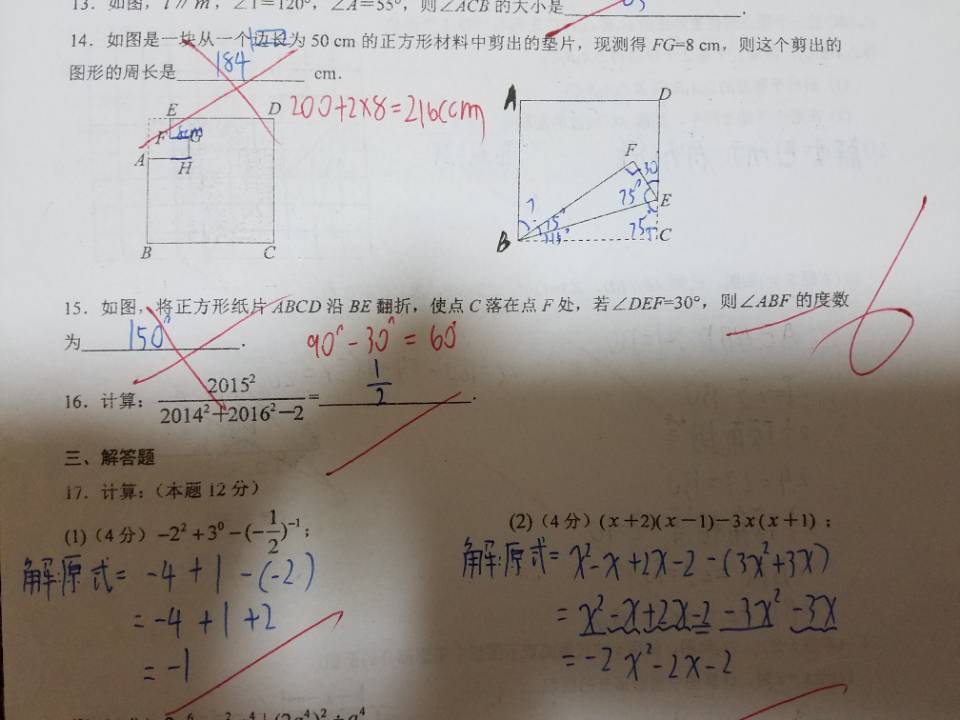 13. 如图，l∥m，∠1=120°，∠A=55°，则∠ACB 的大小是
14. 如图是一块从一个边长为 50 cm 的正方形材料中剪出的垫片，现测得 FG=8 cm，则这个剪出的
图形的周长是 184 cm.
200+2×8=216(cm)
E D
F 8cm G
A H
B C
A D
F 30
75° E
? 15°
15° 75°
B C
15. 如图，将正方形纸片 ABCD 沿 BE 翻折，使点 C 落在点 F 处，若∠DEF=30°，则∠ABF 的度数
为 150° .
90°-30°=60°
6
16. 计算：2015²/(2014²+2016²-2)= 1/2 .
三、解答题
17. 计算：（本题 12 分）
(1)（4 分）-2²+3⁰-(-1/2)⁻¹；
(2)（4 分）(x+2)(x-1)-3x(x+1)；
解:原式= -4+1-(-2)
= -4+1+2
= -1
解:原式= x²-x+2x-2-(3x²+3x)
= x²-x+2x-2-3x²-3x
= -2x²-2x-2